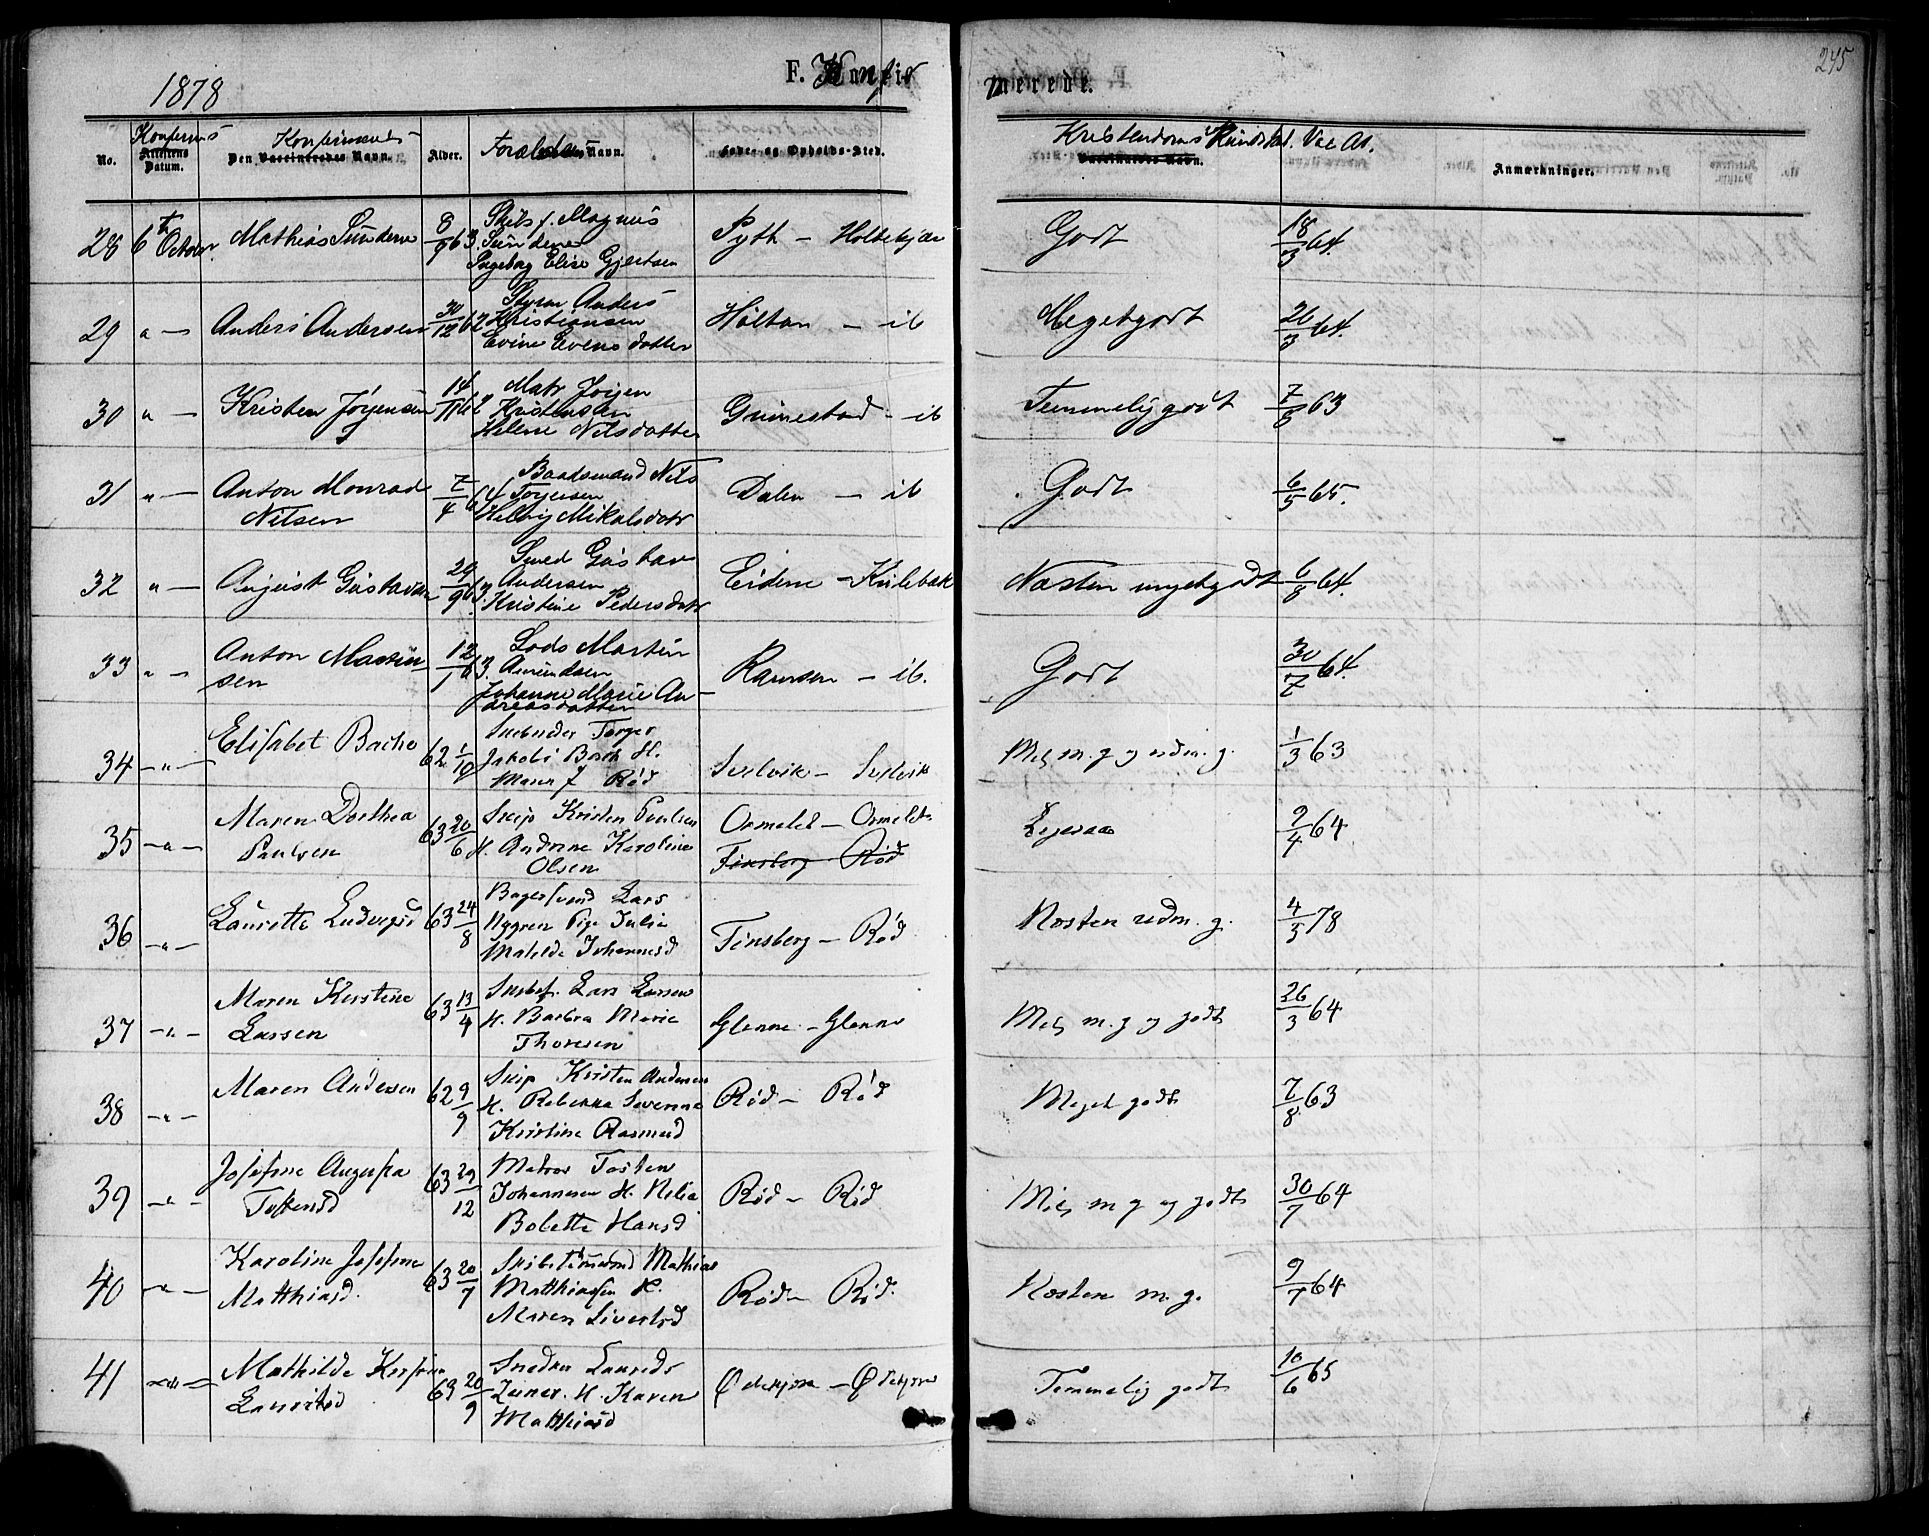 1878
F. Konfir
merede.
245
No.
Konfirms
Attestens Datum.
Konfirmandens
Den Vaccineredes Navn.
Alder.
Forældrenes Navn.
Føde- og Opholds-Sted.
Kristendoms Kundskab. Vac At.
Vaccinators Navn.
Anmærkninger.
28 6te October. Mathias Sundene 8/9 63. Skibsf. Magnus Sundene Ingeborg Elise Gjertsen Pyth - Holtekjær Godt 18/3 64.
29 " - Anders Andersen 30/12 62 Styrm Anders Kristiansen Evine Evensdatter Holtan - ib Meget godt 26/3 64.
30 " - Kristen Jørgensen 14/11 62 Matr Jørgen Kristensen Helene Nilsdatter Grimestad - ib Temmelig godt 7/8 63
31 " - Anton Monrad Nilsen 7/4 64 Baadsmand Nils Torjersen Helvig Mikalsdatr Dalen - ib Godt 6/5 65.
32 " - August Gustavsen 20/9 63. Smed Gustav Andersen Kristine Pedersdatr Eidene - Knilebæk Næsten megetgodt 6/8 64.
33 " - Anton Martinsen 12/1 63. Lods Martin Amundsen Johanne Marie Andreasdatter Ramsen - ib. Godt 30/7 64.
34 - " - Elisabet Backe 62 1/10 Torger Jakobs Bach H. Rød Svelvik - Svelvik Mel m. g og udm. g. 1/3 63
35 - " - Maren Dorthea Paulsen 63 20/6 Skip Kristen Paulsen H. Andrine Karoline Olsen Ormelet - Ormelet Tønsberg - Rød 2/4 64
36 - " - Laurette Ludvigsd 63 24/8 Bagersvend Lars Nygren Pige Julie Matilde Johannesd Tønsberg - Rød Næsten udm. g. 4/5 78
37 - " - Maren Kirstine Larsen 63 13/4 Skibsf. Lars Larsen H. Barbra Marie Thoresen Glenne - Glenne Mel m. g og godt 26/3 64
38 - " - Maren Andersen 62 9/9 Skip Kristen Andersen H. Rebekka Severine Kristine Rasmusd Rød - Rød Meget godt 7/8 63
39 - " - Josefine Augusta Tostensd 63 29/12 Matros Tosten Johannesen H. Nelia Bolette Hansd Rød - Rød Mel m g og godt 30/7 64
40 - " - Karoline Josefine Matthiasd 63 20/7 Skibstømmermd Mathias Matthiassen H. Maren Sivertsd Rød - Rød Næsten m. g. 9/7 64
41 - " - Mathilde Kristine Lauritsd 63 20/9 Snedker Laurits H. Karen Matthiasd Ødekjær - Ødekjær Temmelig godt 10/6 65